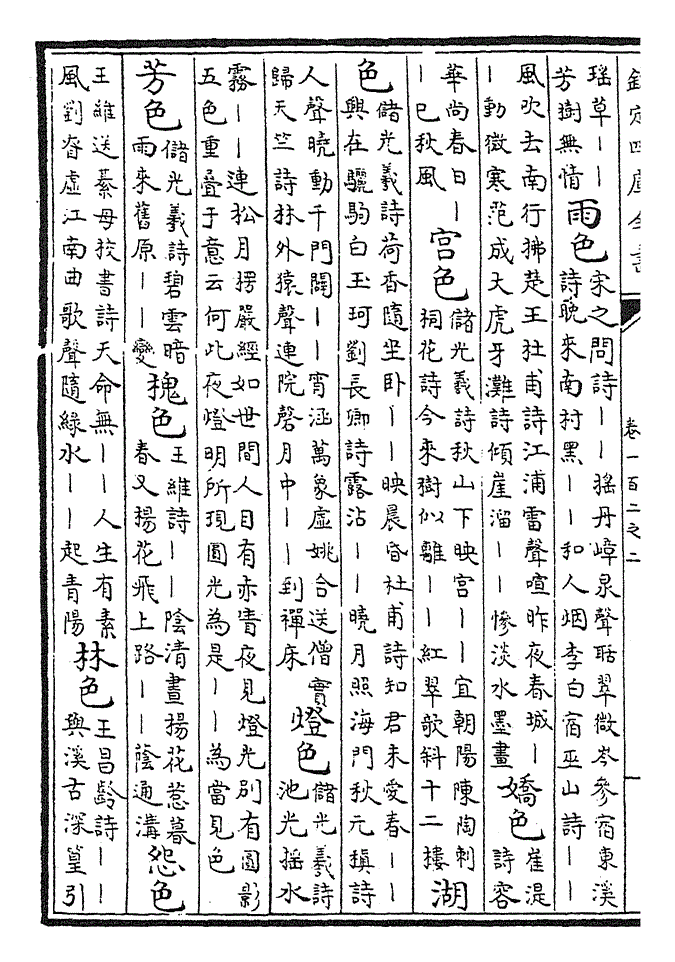 欽定四庫全書 卷一百二之二 一
瑶草丨丨
芳樹無情
雨色
宋之問詩丨丨揺丹嶂泉聲聒翠微岑參宿東溪
詩晚來南村黑丨丨和人烟李白宿巫山詩丨丨
風吹去南行拂楚王杜甫詩江浦雷聲喧昨夜春城丨
丨動微寒范成大虎牙灘詩傾崖溜丨丨惨淡水墨畫
嬌色
崔湜
詩容
華尚春日丨
丨已秋風
宮色
儲光羲詩秋山下映宫丨丨宜朝陽陳陶刺
桐花詩今來樹似離丨丨紅翠欹斜十二樓
湖
色
儲光羲詩荷香隨坐卧丨丨映晨昏杜甫詩知君未愛春丨丨
興在驪駒白玉珂劉長卿詩露沾丨丨曉月照海門秋元稹詩
人聲曉動千門闢丨丨宵涵萬象虚姚合送僧實
歸天竺詩林外猿聲連院磬月中丨丨到禪床
燈色
儲光羲詩
池光揺水
霧丨丨連松月楞嚴經如世間人目有赤眚夜見燈光别有圓影
五色重疊于意云何此夜燈明所現圓光為是丨丨為當見色
芳色
儲光羲詩碧雲暗
雨來舊原丨丨變
槐色
王維詩丨丨陰清晝揚花惹暮
春又揚花飛上路丨丨蔭通溝
怨色
王維送綦母校書詩天命無丨丨人生有素
風劉眘虚江南曲歌聲隨緑水丨丨起青陽
林色
王昌齡詩丨丨
與溪古深篁引